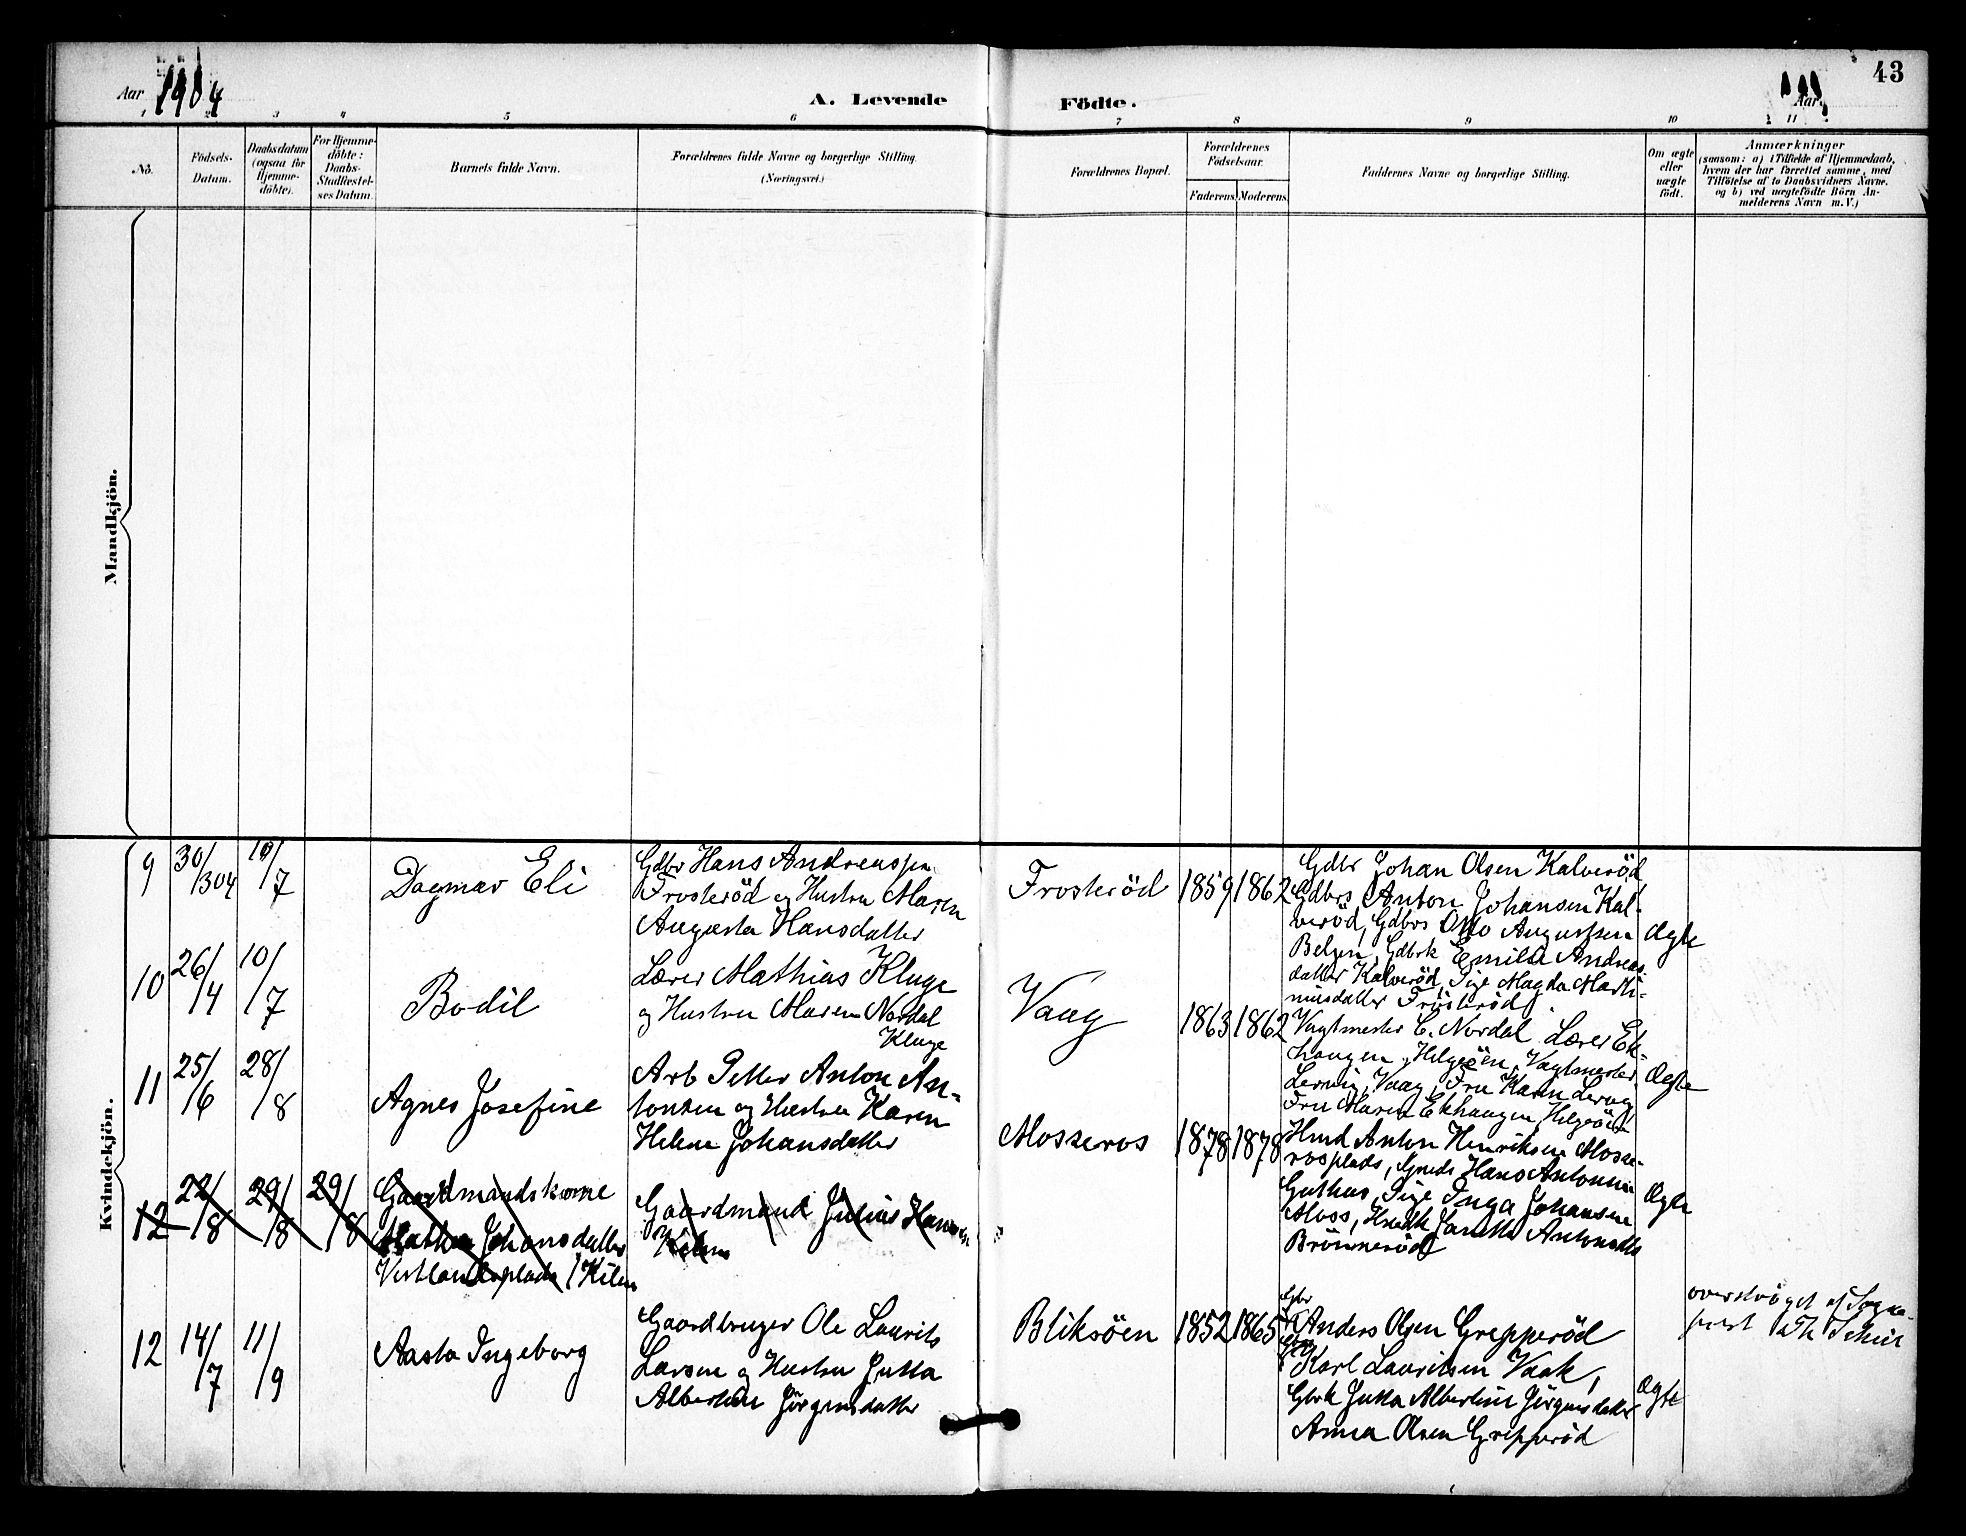 43
Aar 1904
A. Levende Födte.
Aar
1 2 3 4 5 6 7 8 9 10 11
No.
Födsels-
Datum.
Daabsdatum
(ogsaa for
Hjemme-
döbte).
For Hjemme-
döbte:
Daabs-
Stadfæstel-
ses Datum.
Barnets fulde Navn.
Forældrenes fulde Navne og borgerlige Stilling.
(Næringsvei.)
Forældrenes Bopæl.
Forældrenes
Födselsaar.
Faderens. Moderens.
Faddernes Navne og borgerlige Stilling.
Om ægte
eller
uægte
födt.
Anmærkninger
(saasom: a) i Tilfælde af Hjemmedaab,
hvem der har forrettet samme, med
Tilföielse af to Daabsvidners Navne,
og b) ved uægtefödte Börn An-
melderens Navn m.V.)
Mandkjön.
Kvindekjön.
9
30/304
10/7
Dagmar Eli
Gdbr Hans Andreassen
Frosteröd og Hustru Maren
Augusta Hansdatter
Frosteröd
1859 1862
Gdbr Johan Olsen Kalveröd
Gdbrs Anton Johansen Kal-
veröd, Gdbrs Otto Augustsen
Belgen, Gdbrk Emilie Andreas-
datter Kalveröd, Pige Magda Marti-
niusdatter Frösteröd
Ægte
10
26/4
10/7
Bodil
Lærer Mathias Kluge
og Hustru Maren Nordal
Kluge
Vaag
1863 1862
Vagtmester C. Nordal Lærer Ek-
haugen, Helgeöen, Vagtmester
Lervig, Vaag, Fru Karen Lervig
Fru Maren Ekhaugen Helgeöen
Ægte
11
25/6
28/8
Agnes Josefine
Arb Petter Anton An-
tonsen og Hustru Karen
Helene Johansdatter
Mosseros
1878 1878
Hmd Anton Henriksen Mosse-
rosplads, Hans Antonsen
Guthus, Pige Inga Johansen
Moss, Janette Antonsdtr
Brönneröd
Ægte
12
22/8
29/8
29/8
Gaardmandskone
Mathea Johansdatter
Vestlandsplads / Kilen
Gaardmand Julius Hansen
Kilen
overströget af Sogne
prest
12
14/7
11/9
Aasta Ingeborg
Gaardbruger Ole Laurits
Larsen og Hustru Jutta
Albertine Jörgensdatter
Bliksöen
1852 1865
Gbr
Anders Olsen Grepperöd
Karl Lauritsen Vaak,
Gbrk Jutta Albertine Jörgensdatter
Anna Olsen Grepperöd
Ægte